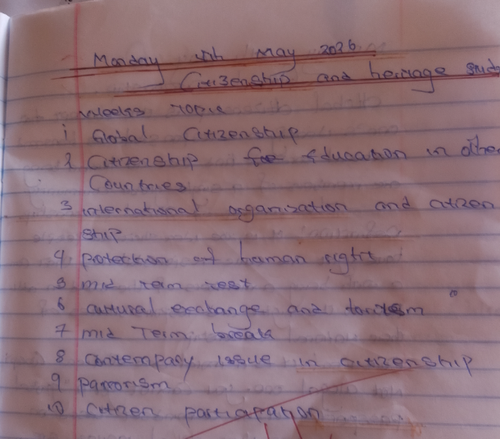 Monday 4th May 2026
Citizenship and heritage
Weeks Topic
1 Global Citizenship
2 Citizenship Education in other
Countries
3 international organization and citizen
ship
4 protection of human right
5 mid term test
6 cultural exchange and tourism
7 mid Term break
8 Contempary issue in citizenship
9
10 Citizen partiapation